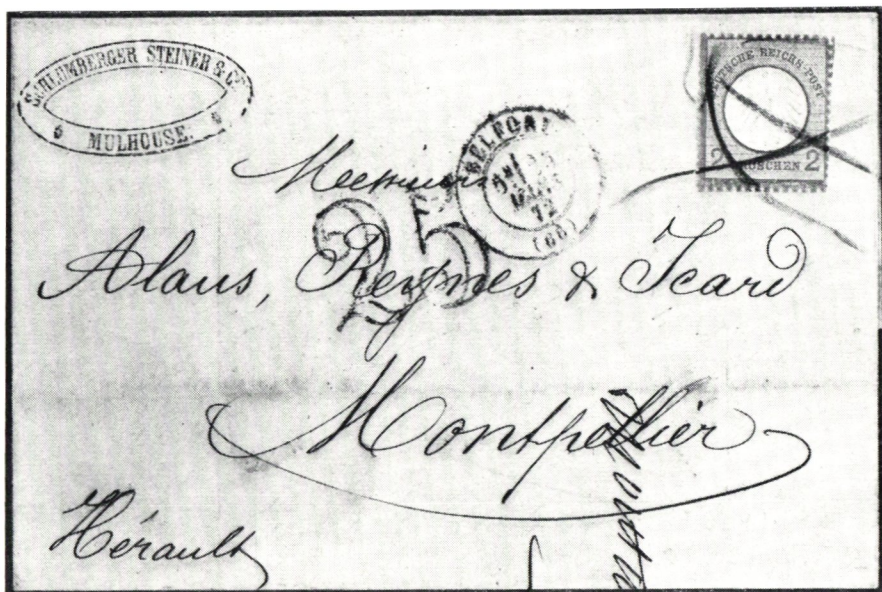 SCHLUMBERGER STEINER & Cº
MULHOUSE.
DEUTSCHE REICHS-POST
2 GROSCHEN 2
BELFORT
MARS
72
(66)
25
Messieurs
Alaus, Reynes & Icard
Montpellier
Hérault